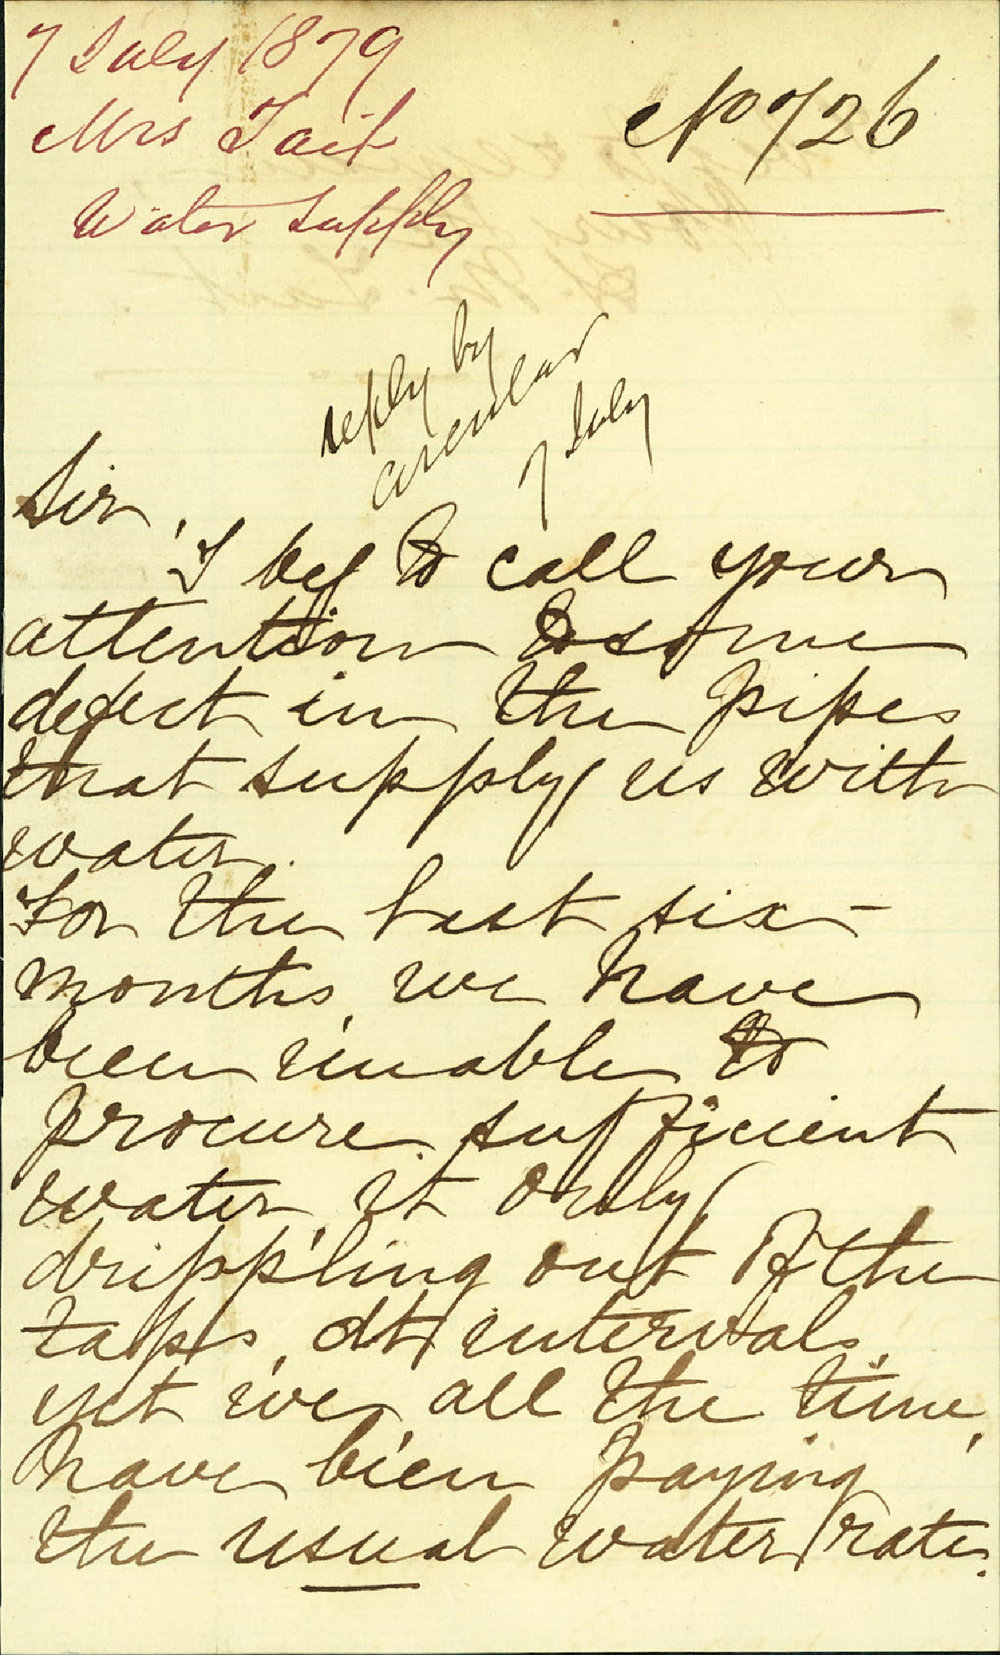 7 July 1879
Mrs Tait
Water Supply
No 726
reply by
circular
7 July
Sir,
I beg to call your
attention to some
defect in the pipes
that supply us with
water.
For the last six
months, we have
been unable to
procure sufficient
water, it only
drippling out of the
taps, at intervals,
yet we, all the time,
have been paying
the usual water rate.